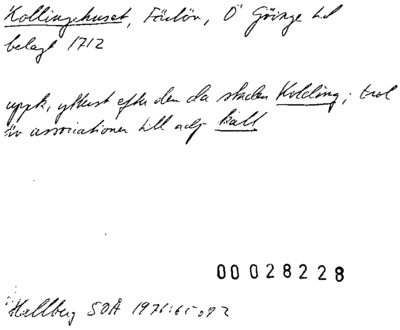 Kollingehuset, Förlöv, Ö Göinge hd
belagt 1712
uppk, ytterst efter den da staden Kolding; trol
är associationen till adj kall
00028228
Hallberg SOÅ 1976:65 o 92